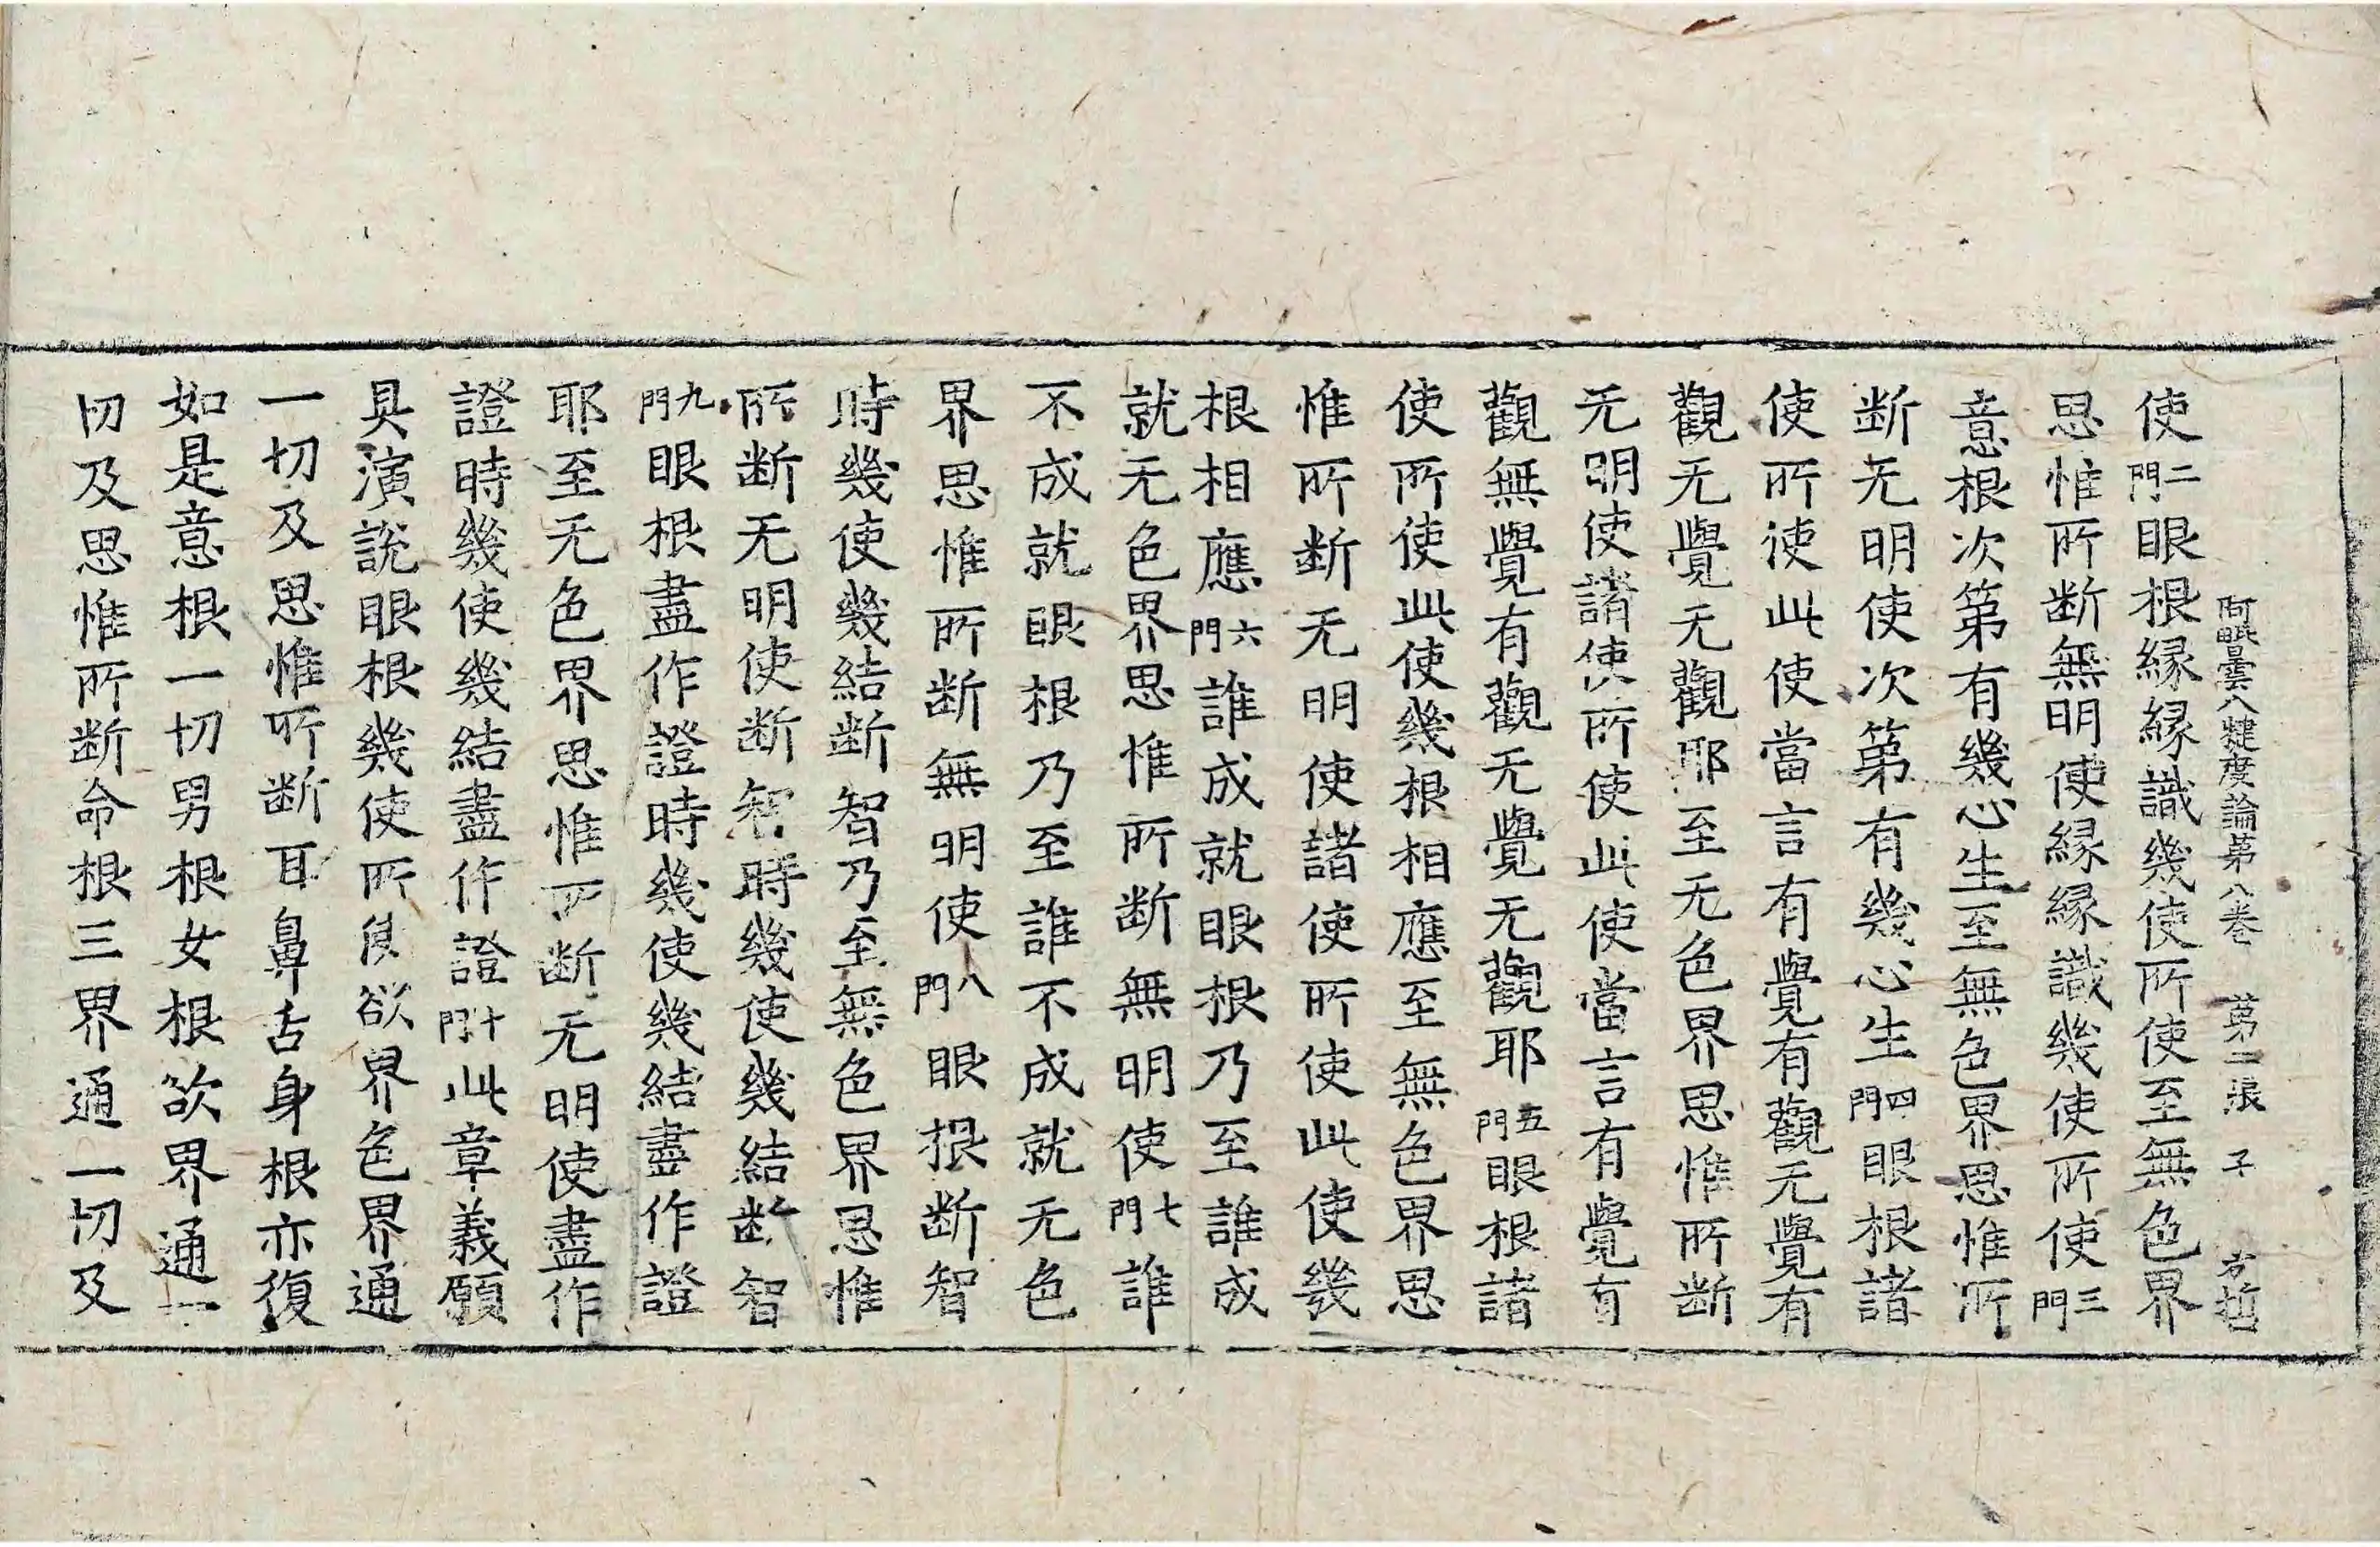 阿毗曇八犍度論第八卷 第二張 子 方哲
使二門眼根縁縁識幾使所使至無色界
思惟所断無明使縁縁識幾使所使三門
意根次第有幾心生至無色界思惟所
断无明使次第有幾心生四門眼根諸
使所使此使當言有覺有觀无覺有
觀无覺无觀耶至无色界思惟所断
无明使諸使所使此使當言有覺有
觀無覺有觀无覺无觀耶五門眼根諸
使所使此使幾根相應至無色界思
惟所断无明使諸使所使此使幾
根相應六門誰成就眼根乃至誰成
就无色界思惟所断無明使七門誰
不成就眼根乃至誰不成就无色
界思惟所断無明使八門眼根断智
時幾使幾結断智乃至無色界思惟
所断无明使断智時幾使幾結断智
九門眼根盡作證時幾使幾結盡作證
耶至无色界思惟所断无明使盡作
證時幾使幾結盡作證十門此章義願
具演說眼根幾使所使欲界色界通
一切及思惟所断耳鼻舌身根亦復
如是意根一切男根女根欲界通一
切及思惟所断命根三界通一切及